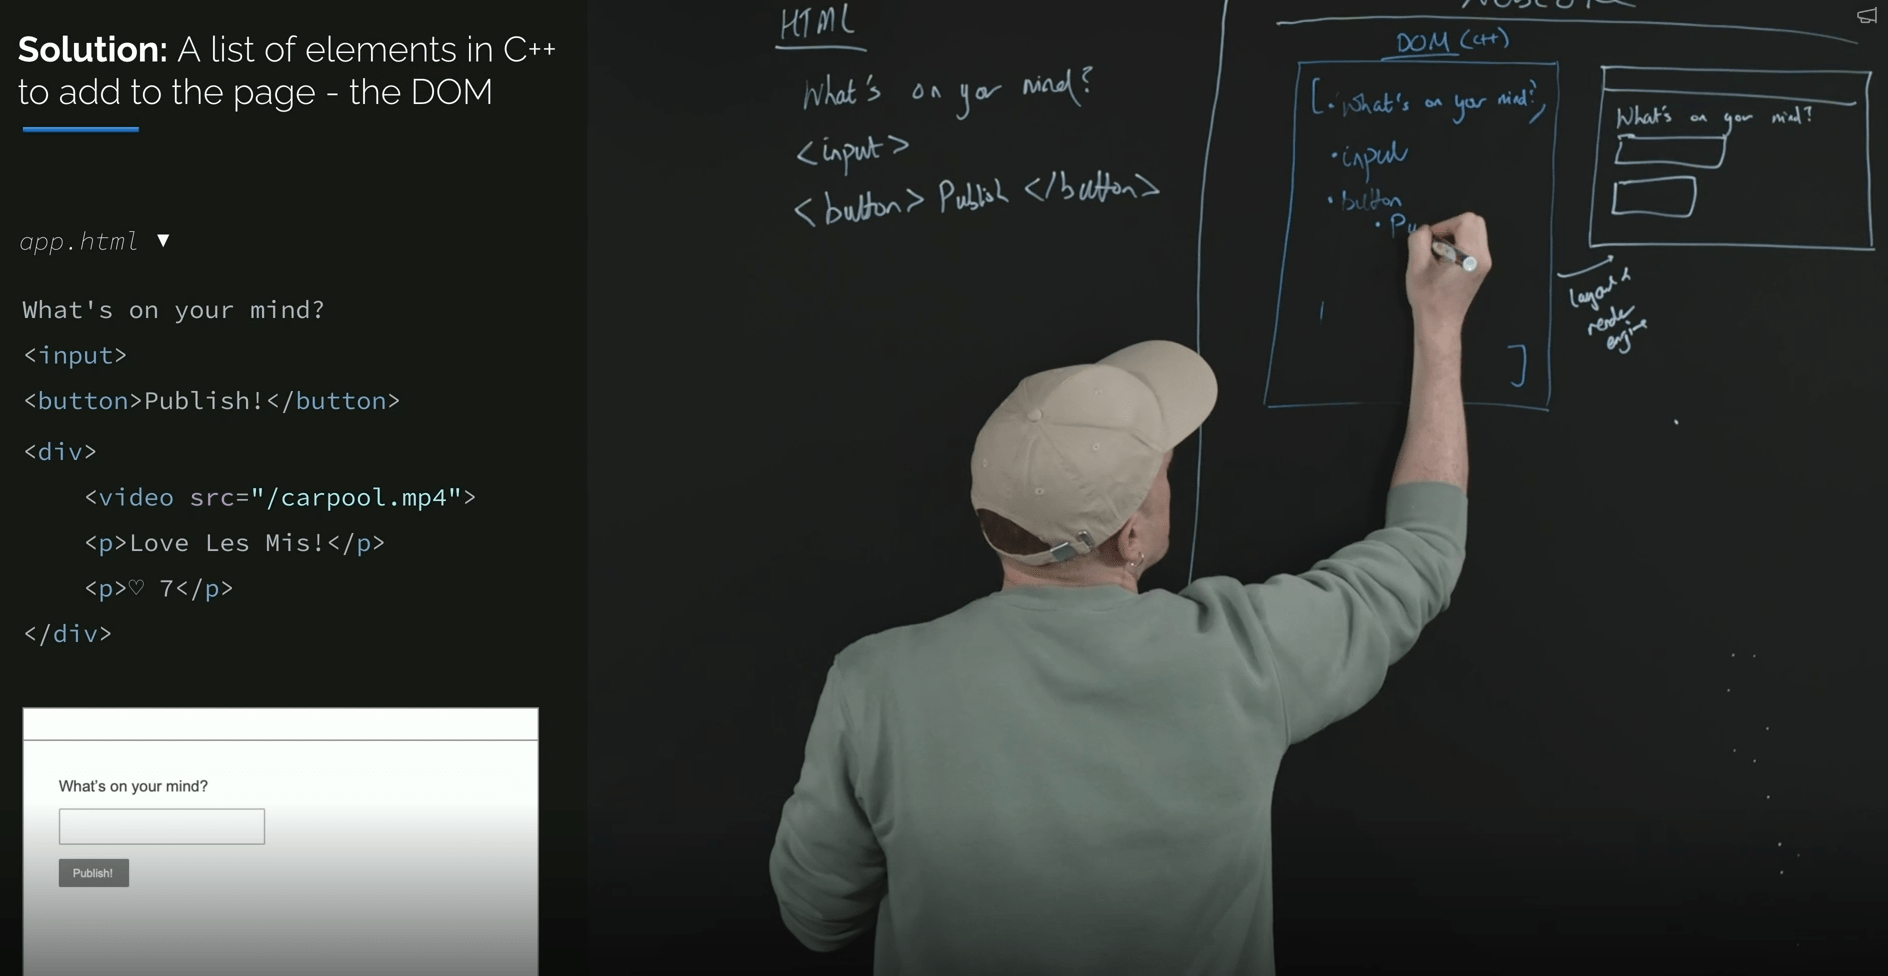 Solution: A list of elements in C++
to add to the page - the DOM
app.html ▼
What's on your mind?
<input>
<button>Publish!</button>
<div>
<video src="/carpool.mp4">
<p>Love Les Mis!</p>
<p>♡ 7</p>
</div>
What's on your mind?
Publish!
HTML
What's on your mind?
<input>
<button> Publish </button>
DOM (C++)
[ • What's on your mind?,
• input
• button
• Pu
]
What's on your mind?
layout &
render
engine